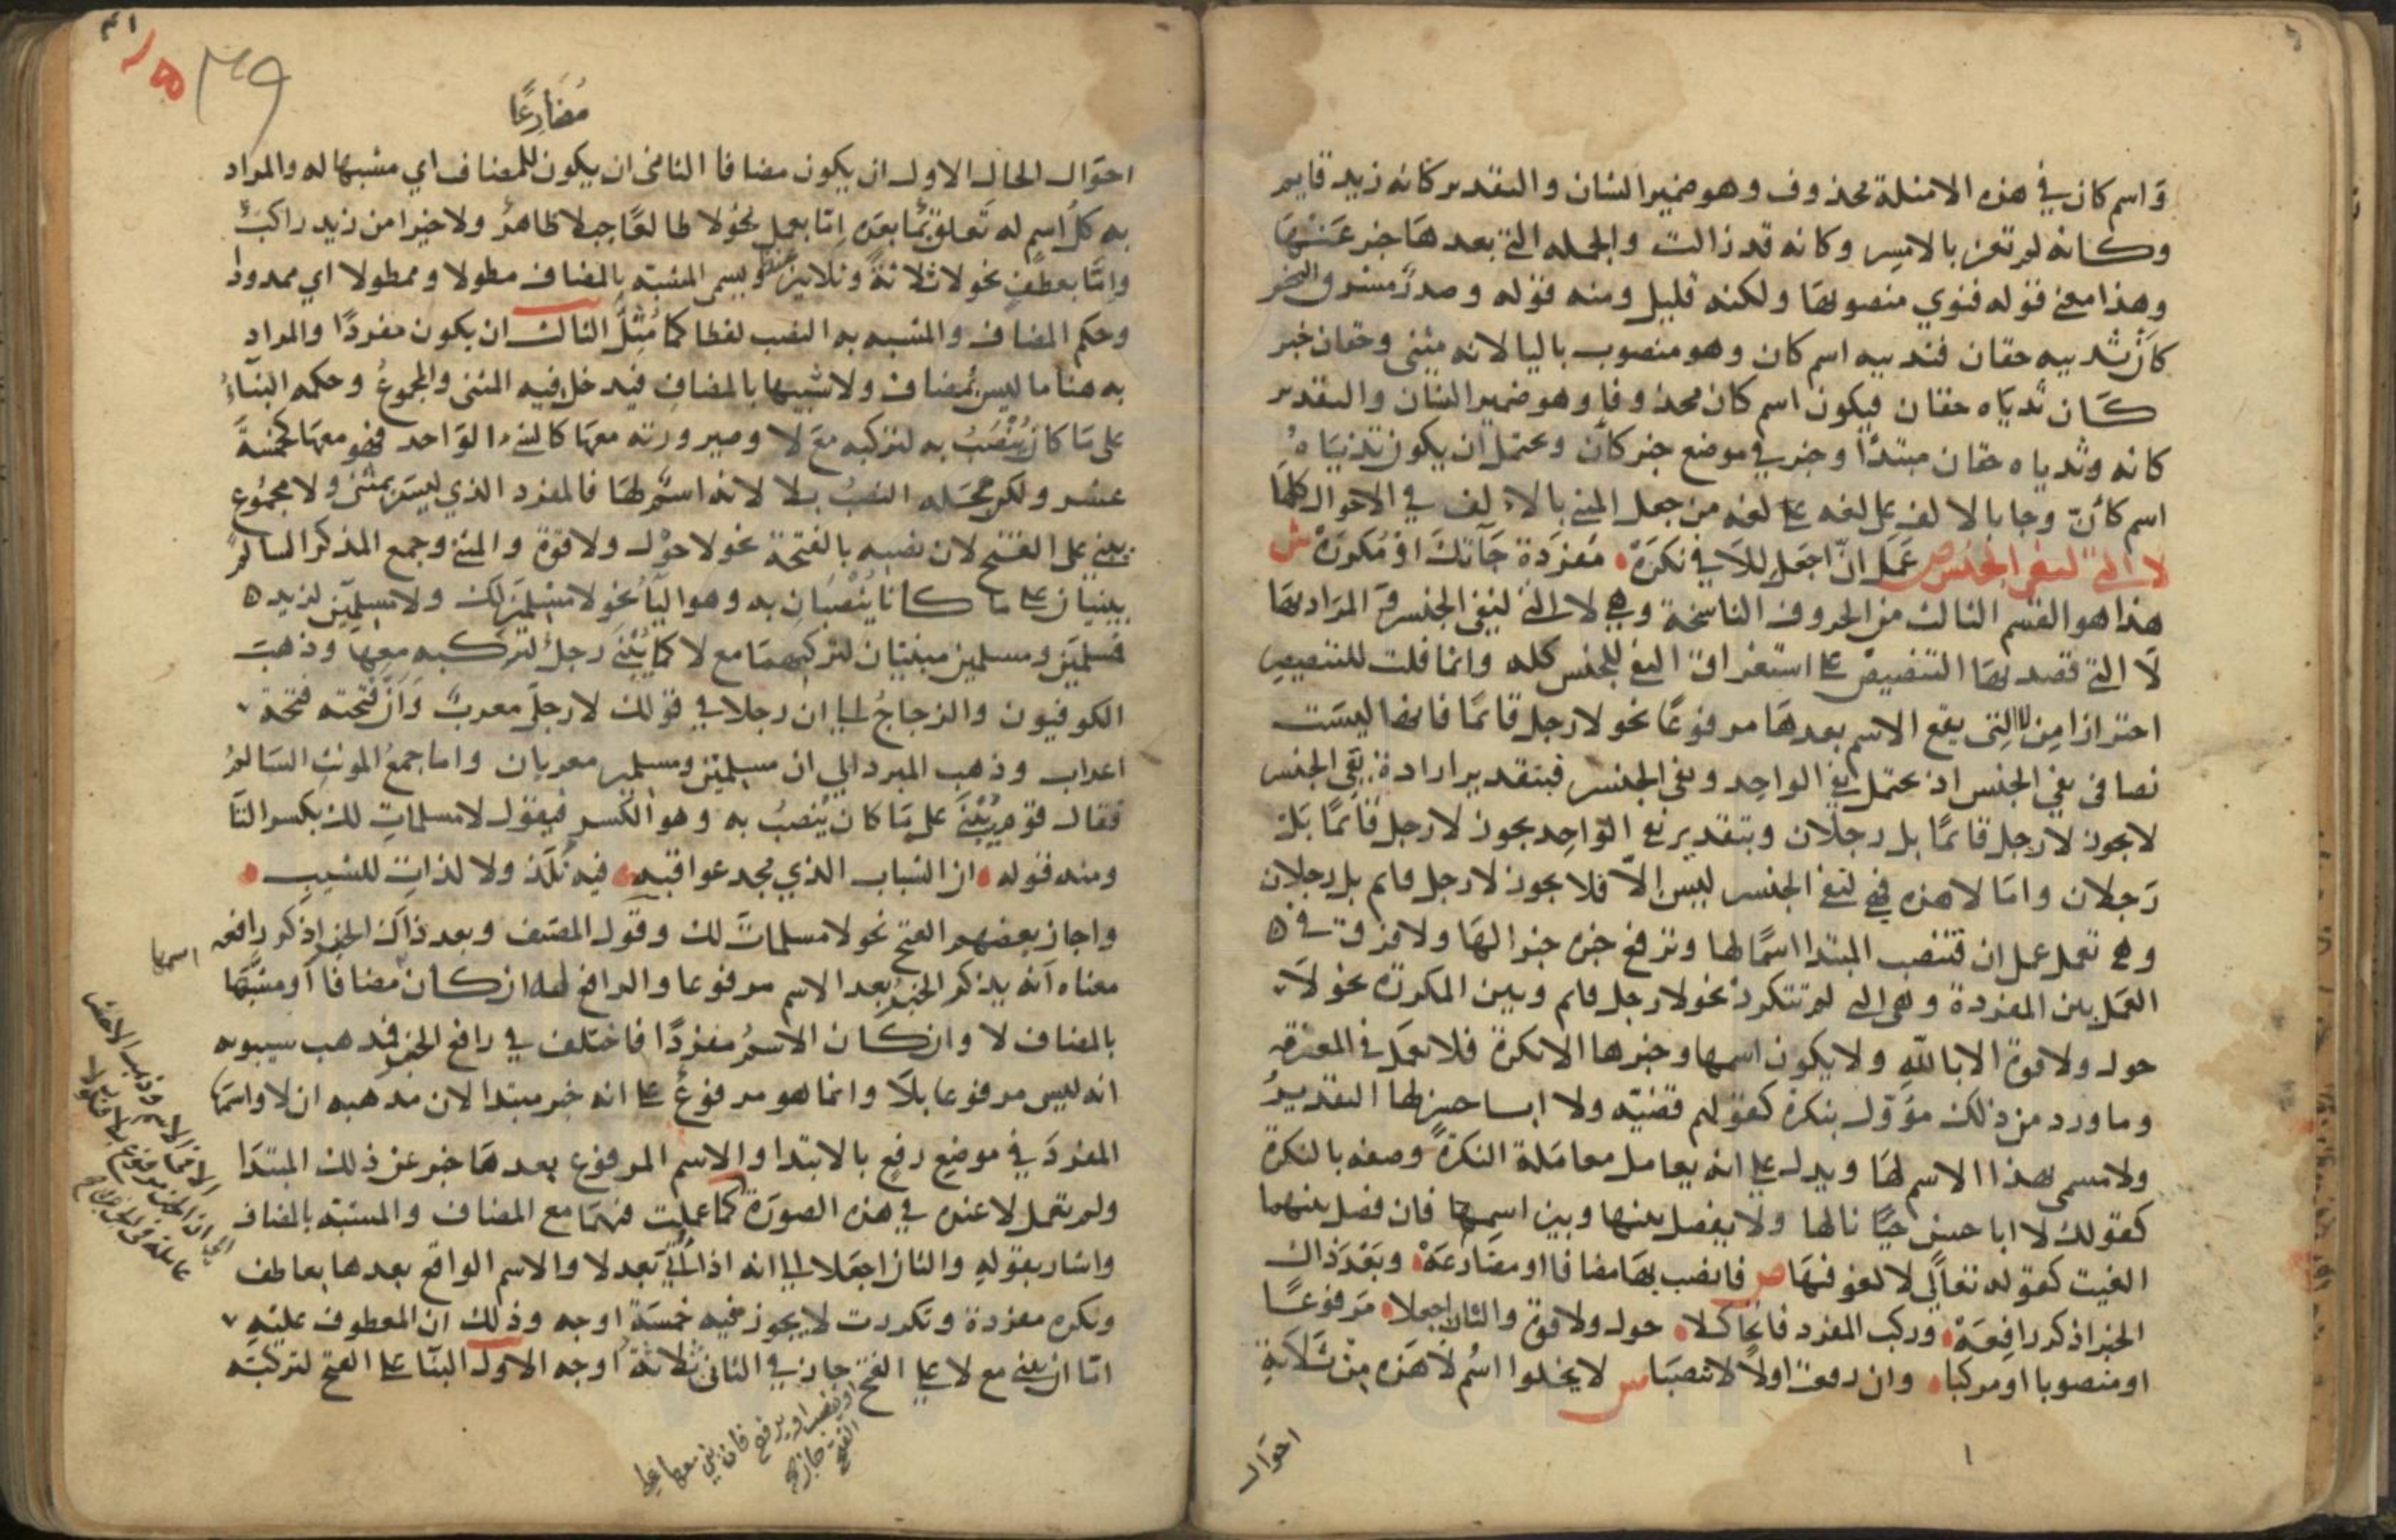 واسم كان في هذه الامثلة محذوف وهو ضمير الشان والتقدير كانه زيد قايم
وكانه لم تغن بالامس وكانه قد زالت والجمله التي بعدها خبر عنها
وهذا معنى قوله فنوي منصوبها ولكنه قليل ومنه قوله وصدر مشرق النحر
كأن ثدييه حقان فثدييه اسم كان وهو منصوب باليا لانه مثنى وحقان خبر
كان ثدياه حقان فيكون اسم كان محذوفا وهو ضمير الشان والتقدير
كانه وثدياه حقان مبتدأ وخبر في موضع خبر كأن ويحتمل ان يكون ثدياه
اسم كأن وجا بالالف على لغه من جعل المثنى بالالف في الاحوال كلها
لا التي لنفي الجنس ص عمل ان اجعل للا في نكره مفردة جآتك او مكررة ش
هذا هو القسم الثالث من الحروف الناسخة وهي لا التي لنفي الجنس والمراد بها
لا التي قصد بها التنصيص على استغراق النفي للجنس كله وانما قلت للتنصيص
احترازا من لا التي يقع الاسم بعدها مرفوعا نحو لا رجل قائما فانها ليست
نصا في نفي الجنس اذ يحتمل نفي الواحد ونفي الجنس فبتقدير ارادة نفي الجنس
لا يجوز لا رجل قائما بل رجلان وبتقدير نفي الواحد يجوز لا رجل قائما بل
رجلان واما لا هذه فهي لنفي الجنس ليس الا فلا يجوز لا رجل قايم بل رجلان
وهي تعمل عمل ان فتنصب المبتدا اسما لها وترفع خبره خبرا لها ولا فرق في
العمل بين المفردة وهي التي لم تتكرر نحو لا رجل قايم وبين المكررة نحو لا
حول ولا قوة الا بالله ولا يكون اسمها وخبرها الا نكرة فلا تعمل في المعرفة
وما ورد من ذلك مؤول بنكرة كقولهم قضية ولا ابا حسن لها التقدير
ولا مسمى بهذا الاسم لها ويدل على انه يعامل معاملة النكرة وصفه بالنكرة
كقولك لا ابا حسن حيا نالها ولا يفصل بينها وبين اسمها فان فصل بينهما
الغيت كقوله تعالى لا لغو فيها ص فانصب بها مضافا او مضارعه وبعد ذاك
الخبر اذكر رافعه وركب المفرد فاتحا كلا حول ولا قوة والثان اجعلا مرفوعا
او منصوبا او مركبا وان رفعت اولا لا تنصبا ش لا يخلوا اسم لا هذه من ثلاثة
احوال
مضارعا
احوال الحال الاول ان يكون مضافا الثاني ان يكون للمضاف اي مشبها له والمراد
به كل اسم له تعلق بما بعده اما بعمل نحو لا طالعا جبلا ظاهر ولا خيرا من زيد راكب
واما بعطف نحو لا ثلاثة وثلاثين عندنا ويسمى المشبه بالمضاف مطولا وممطولا اي ممدودا
وحكم المضاف والمشبه به النصب لفظا كما مثل الثالث ان يكون مفردا والمراد
به هنا ما ليس بمضاف ولا شبيها بالمضاف فيدخل فيه المثنى والمجموع وحكمه البناء
على ما كان ينصب به لتركبه مع لا وصيرورته معها كالشيء الواحد فهو معها كخمسة
عشر ولكن محله النصب بلا لانه اسم لها فالمفرد الذي ليس بمثنى ولا مجموع
يبنى على الفتح لان نصبه بالفتحة نحو لا حول ولا قوة والمثنى وجمع المذكر السالم
يبنيان على ما كانا ينصبان به وهو اليا نحو لا مسلمين لك ولا مسلمين لزيد ه
فمسلمين ومسلمين مبنيان لتركبهما مع لا كما بني رجل لتركبه معها وذهب
الكوفيون والزجاج الى ان رجلا في قولك لا رجل معرب وان فتحته فتحة
اعراب وذهب المبرد الي ان مسلمين ومسلمين معربان واما جمع المونث السالم
فقال قوم يبنى على ما كان ينصب به وهو الكسر فيقول لا مسلمات لك بكسر التا
ومنه قوله ان الشباب الذي مجد عواقبه فيه نلذ ولا لذات للشيب
واجاز بعضهم الفتح نحو لا مسلمات لك وقول المصنف وبعد ذاك الخبر اذكر رافعه
معناه انه يذكر الخبر بعد الاسم مرفوعا والرافع له ان كان اسمها مضافا او مشبها
بالمضاف لا وان كان الاسم مفردا فاختلف في رافع الخبر فذهب سيبويه
انه ليس مرفوعا بلا وانما هو مرفوع على انه خبر مبتدا لان مذهبه ان لا واسمها
المفرد في موضع رفع بالابتدا والاسم المرفوع بعدها خبر عن ذلك المبتدا
ولم تعمل لا عنده في هذه الصورة الا في الاسم وذهب الاخفش
الى ان الخبر مرفوع بلا فتكون لا
عاملة في الجزئين كما عملت فيهما مع المضاف والمشبه بالمضاف
واشار بقوله والثان اجعلا الى انه اذا اتي بعد لا والاسم الواقع بعدها بعاطف
ونكره مفردة وتكررت لا يجوز فيه خمسة اوجه وذلك ان المعطوف عليه
اما ان يبنى مع لا على الفتح او ينصب او يرفع فان بني معها على
الفتح جاز في الثاني ثلاثة اوجه الاول البنا على الفتح لتركبه